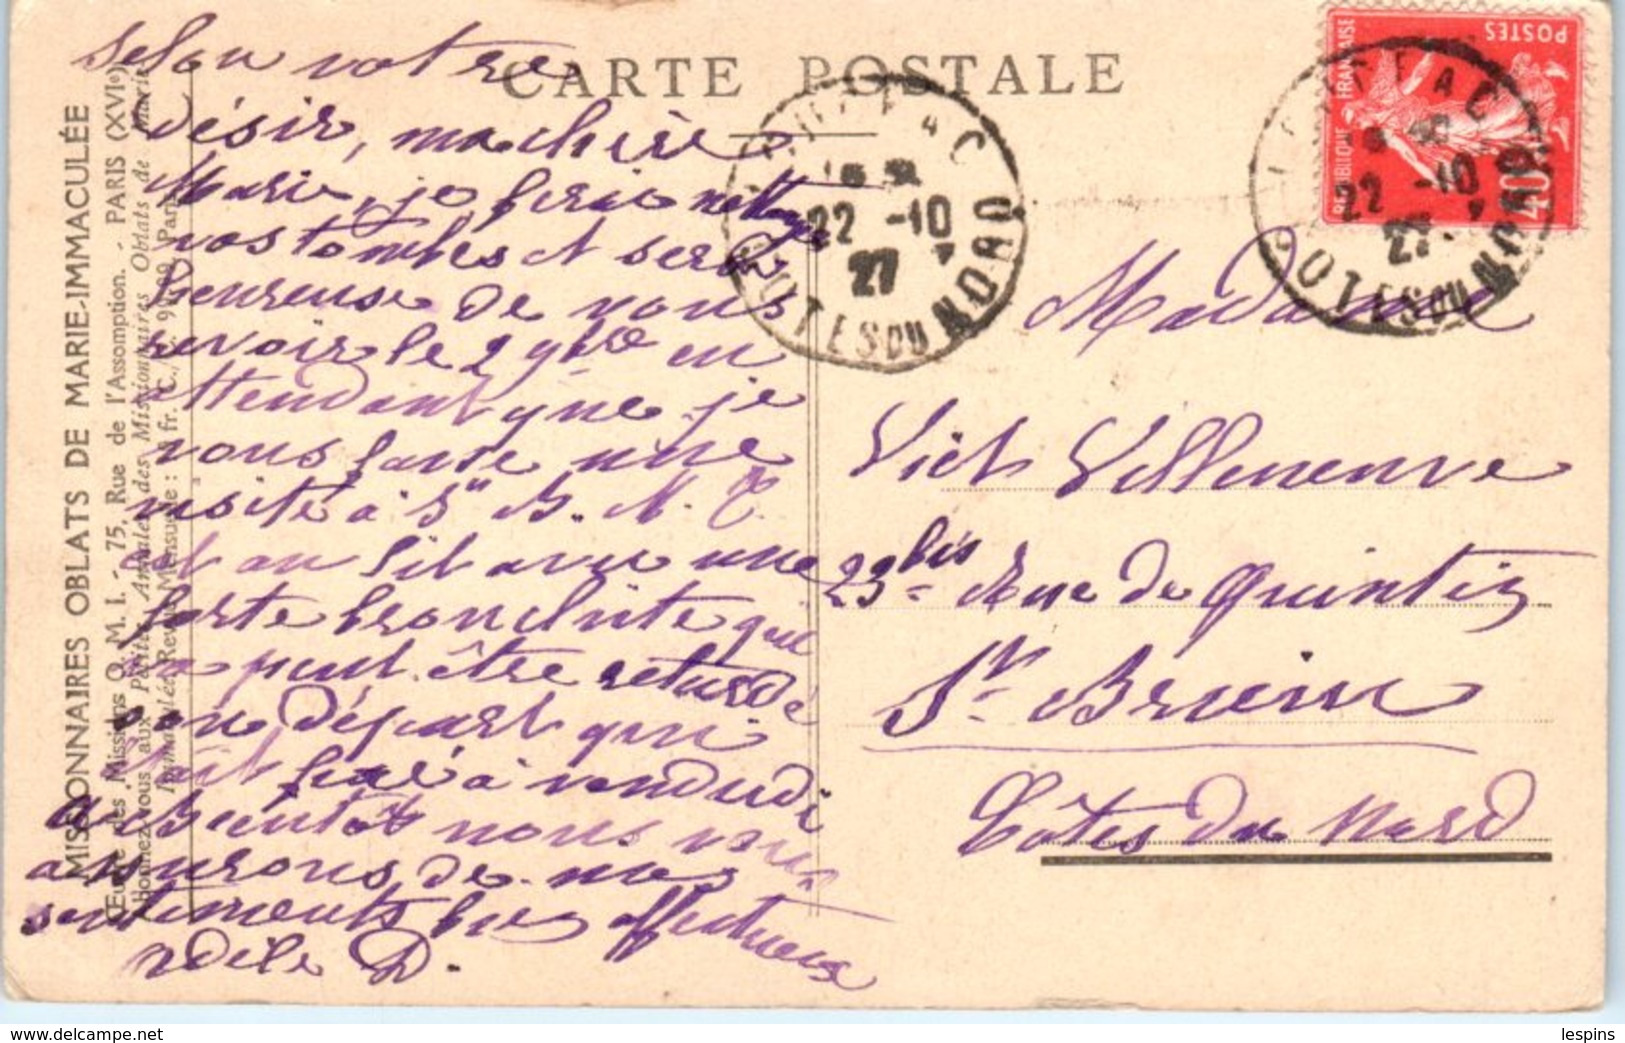 CARTE POSTALE
selon votre
désir, ma chère
Marie, je ferai nettoyer
vos tombes et serai
heureuse de vous
revoir le 2 9bre en
attendant que je
vous fasse une
visite à St B. M. T.
est au lit avec une
forte bronchite qui
peut être retarde
son départ qui
était fixé à vendredi
à Bientôt nous vous
assurons de nos
sentiments bien affectueux
Adèle D.
Madame
Vict Villeneuve
23 bis Rue de Quintin
St Brieuc
Côtes du Nord
POSTES
REPUBLIQUE FRANÇAISE
40c
22 -10
27
COTES DU NORD
22 -10
27
COTES DU NORD
MISSIONNAIRES OBLATS DE MARIE-IMMACULÉE
Œuvre des Missions O. M. I. - 75, Rue de l'Assomption. - PARIS (XVIe)
Abonnez-vous aux Petites Annales des Missionnaires Oblats de Marie
Immaculée, Revue Mensuelle : fr. C./C. Paris
lespins
www.delcampe.net